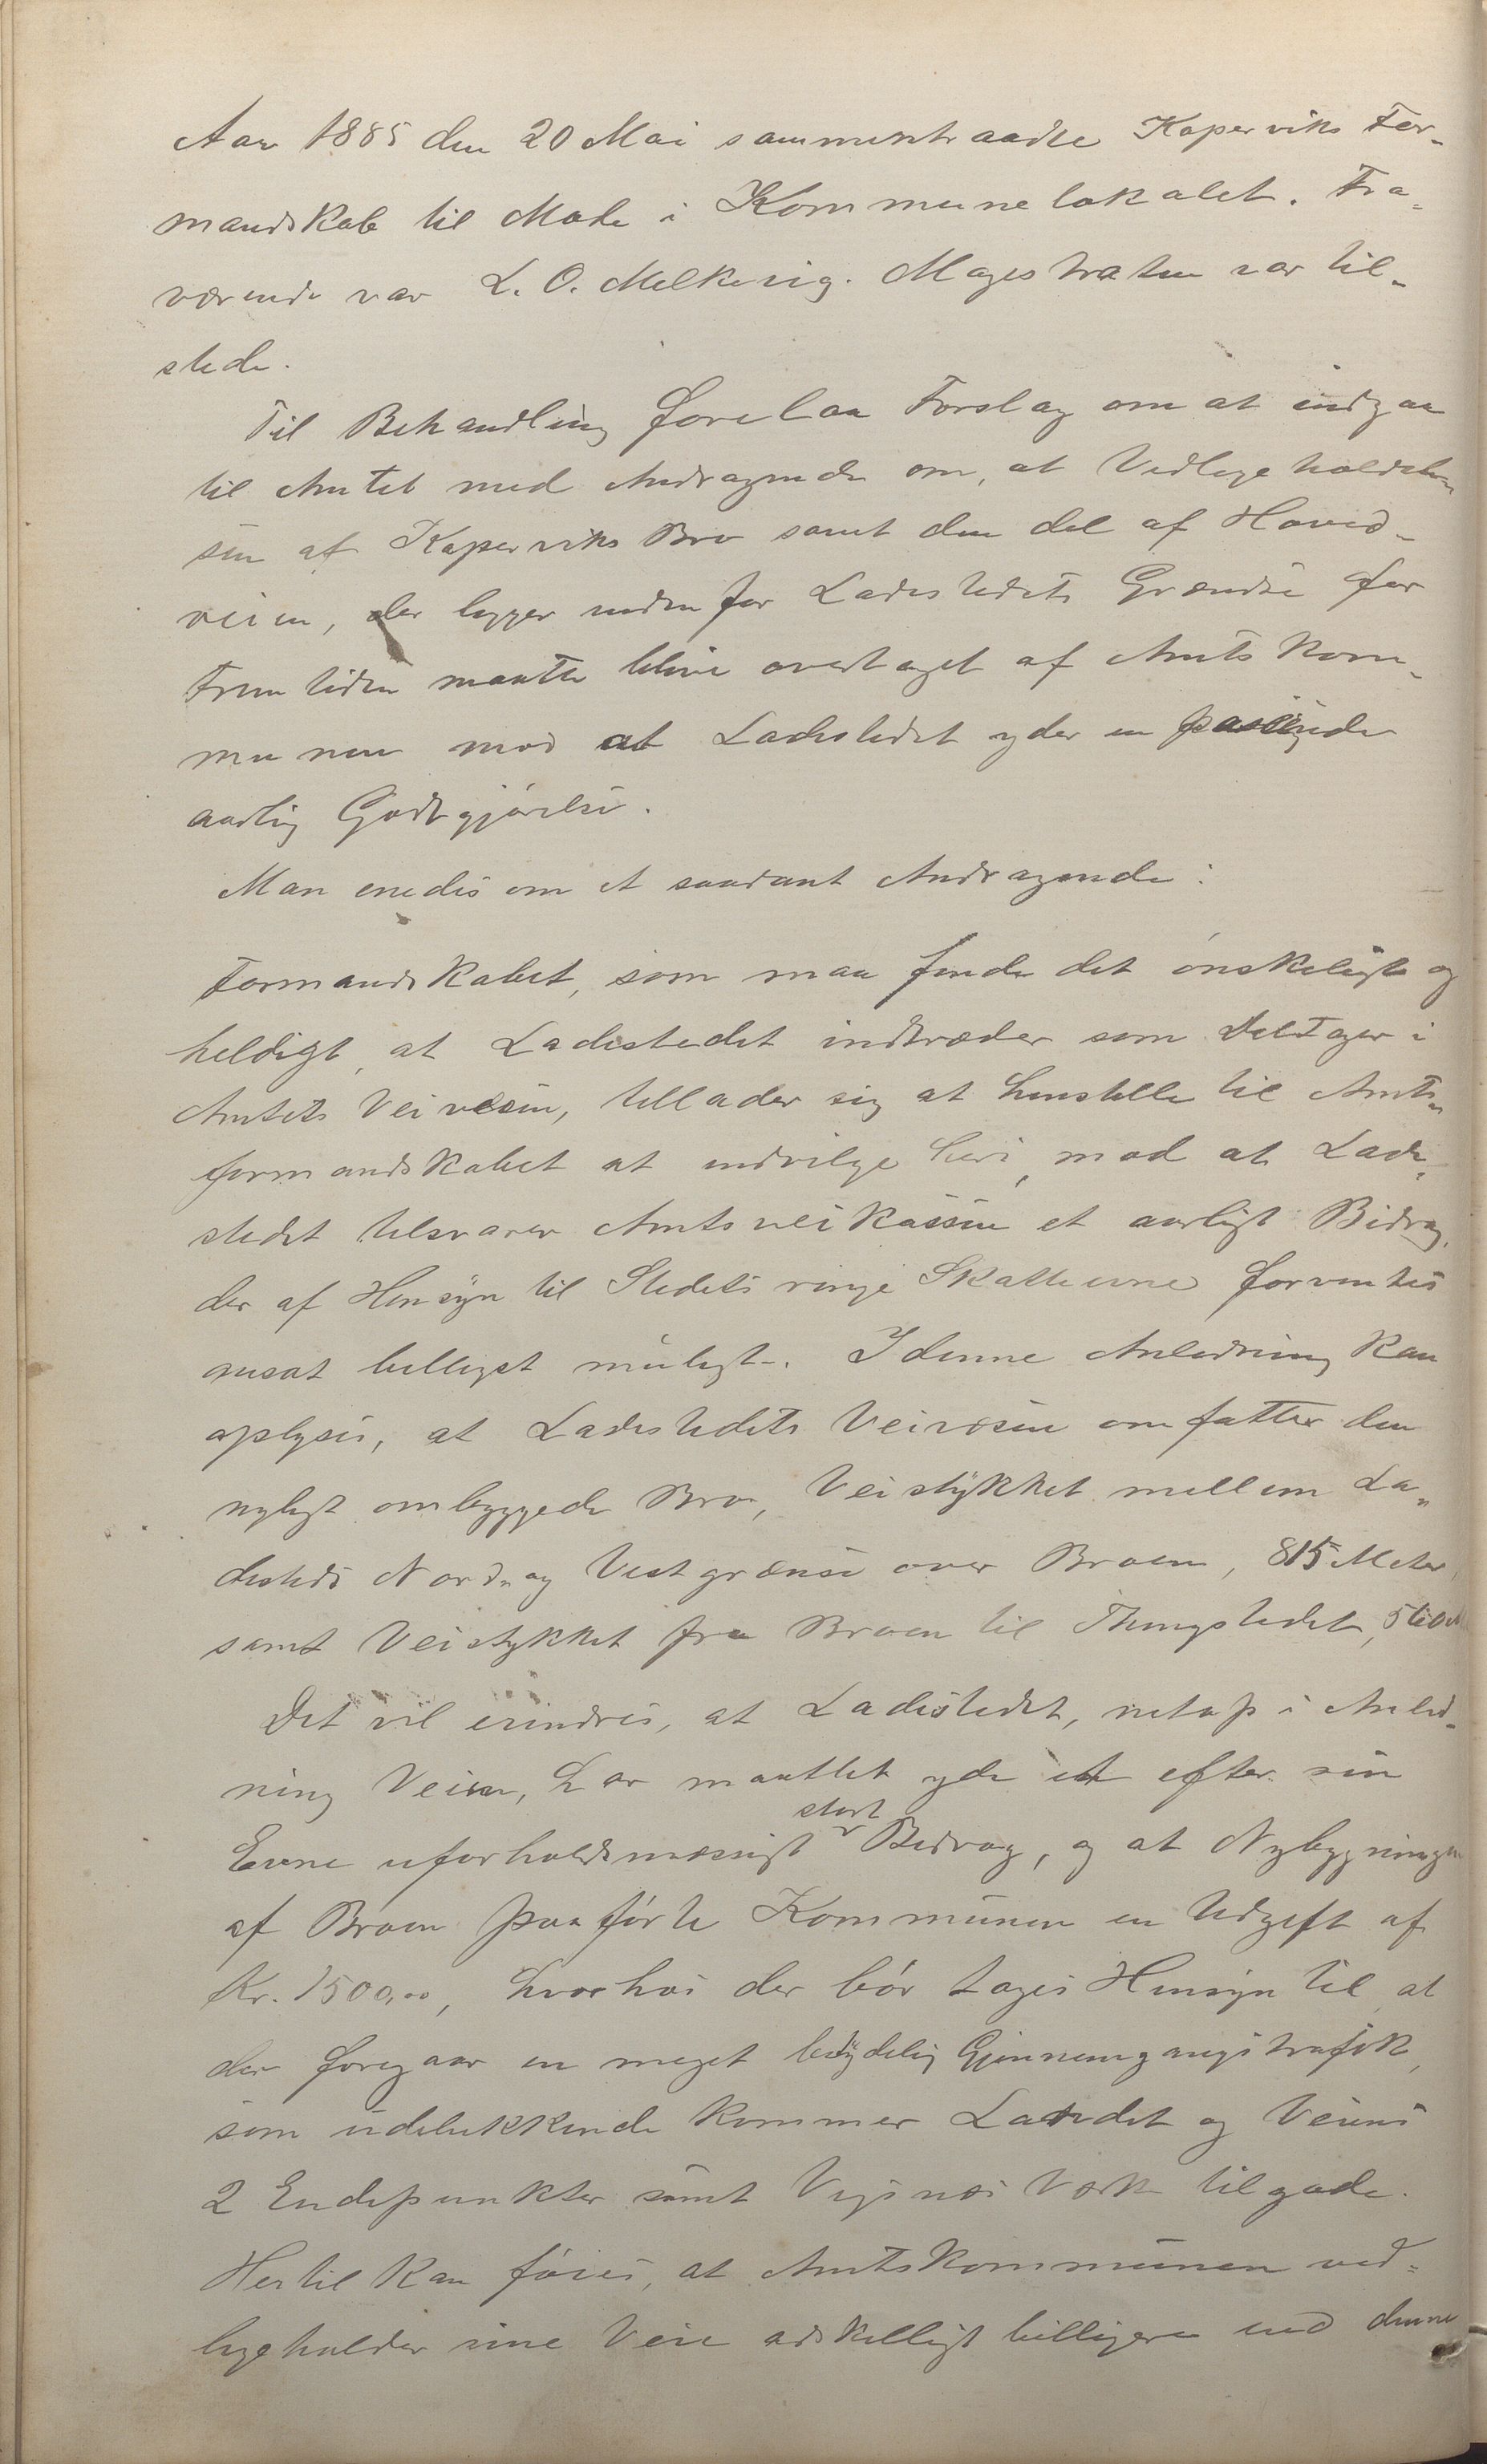 Aar 1885 den 20 Mai sammentraadte Kopervik For-
mandskab til Møde i Kommunelokalet. Fra-
værende var L. O. Melkevig. Magistraten var til-
stede.
Til Behandling forelaa Forslag om at indgaa
til Amtet med Andragende om, at Vedligeholdel-
sen af Koperviks Bro samt den del af Hoved-
veien, der ligger indenfor Ladestedets Grændse for
Fremtiden maatte blive overtaget af Amtskom-
munen mod at Ladestedet yder en passende
aarlig Godtgjørelse.
Man enedes om et saadant Andragende:
Formandskabet, som maa finde det ønskeligt og
heldigt, at Ladestedet indtræder som Deltager i
Amtets Veivæsen, tillader sig at henstille til Amts-
formandskabet at indvilge heri, mod at Lade-
stedet tilsvarer Amtsveikassen et aarligt Bidrag,
der af Hensyn til Stedets ringe Skatteevne forventes
ansat billigst muligt. I denne Anledning kan
oplyses, at Ladestedets Veivæsen omfatter den
nyligt ombyggede Bro, Veistykket mellem La-
desteds Nord- og Vestgrænse over Broen, 815 Meter,
samt Veistykket fra Broen til Thingstedet,
Det vil erindres, at Ladestedet, netop i Anled-
ning Veien, har maattet yde et efter sin
Evne uforholdsmæssigt stort Bidrag, og at Nybygningen
af Broen paaførte Kommunen en Udgift af
Kr. 1500,00, hvorhos der bør tages Hensyn til, at
der foregaar en meget betydelig Gjennemgangstrafik,
som udelukkende kommer Landet og Veiens
2 Endepunkter samt Vigsnes Værk tilgode.
Hertil kan føies, at Amtskommunen ved-
ligeholder sine Veie adskilligt billigere end denne